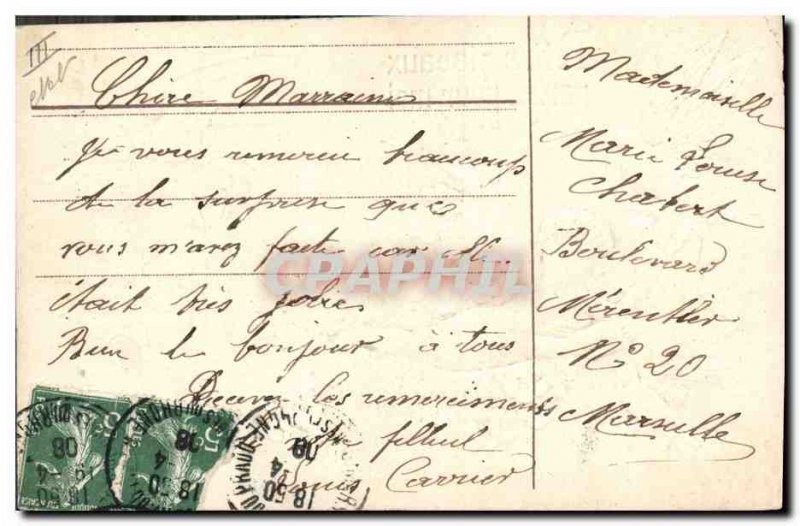 III
Chère Marraine
Je vous remercie beaucoup
de la surprise que
vous m'avez fait car elle
était très jolie
Bien le bonjour à tous
Recever les remerciments
votre filleul
Louis Carrier
Mademoiselle
Marie Louise
Chabert
Boulevard
Mérentier
No 20
Marseille
CPAPHIL
5
5
18 50